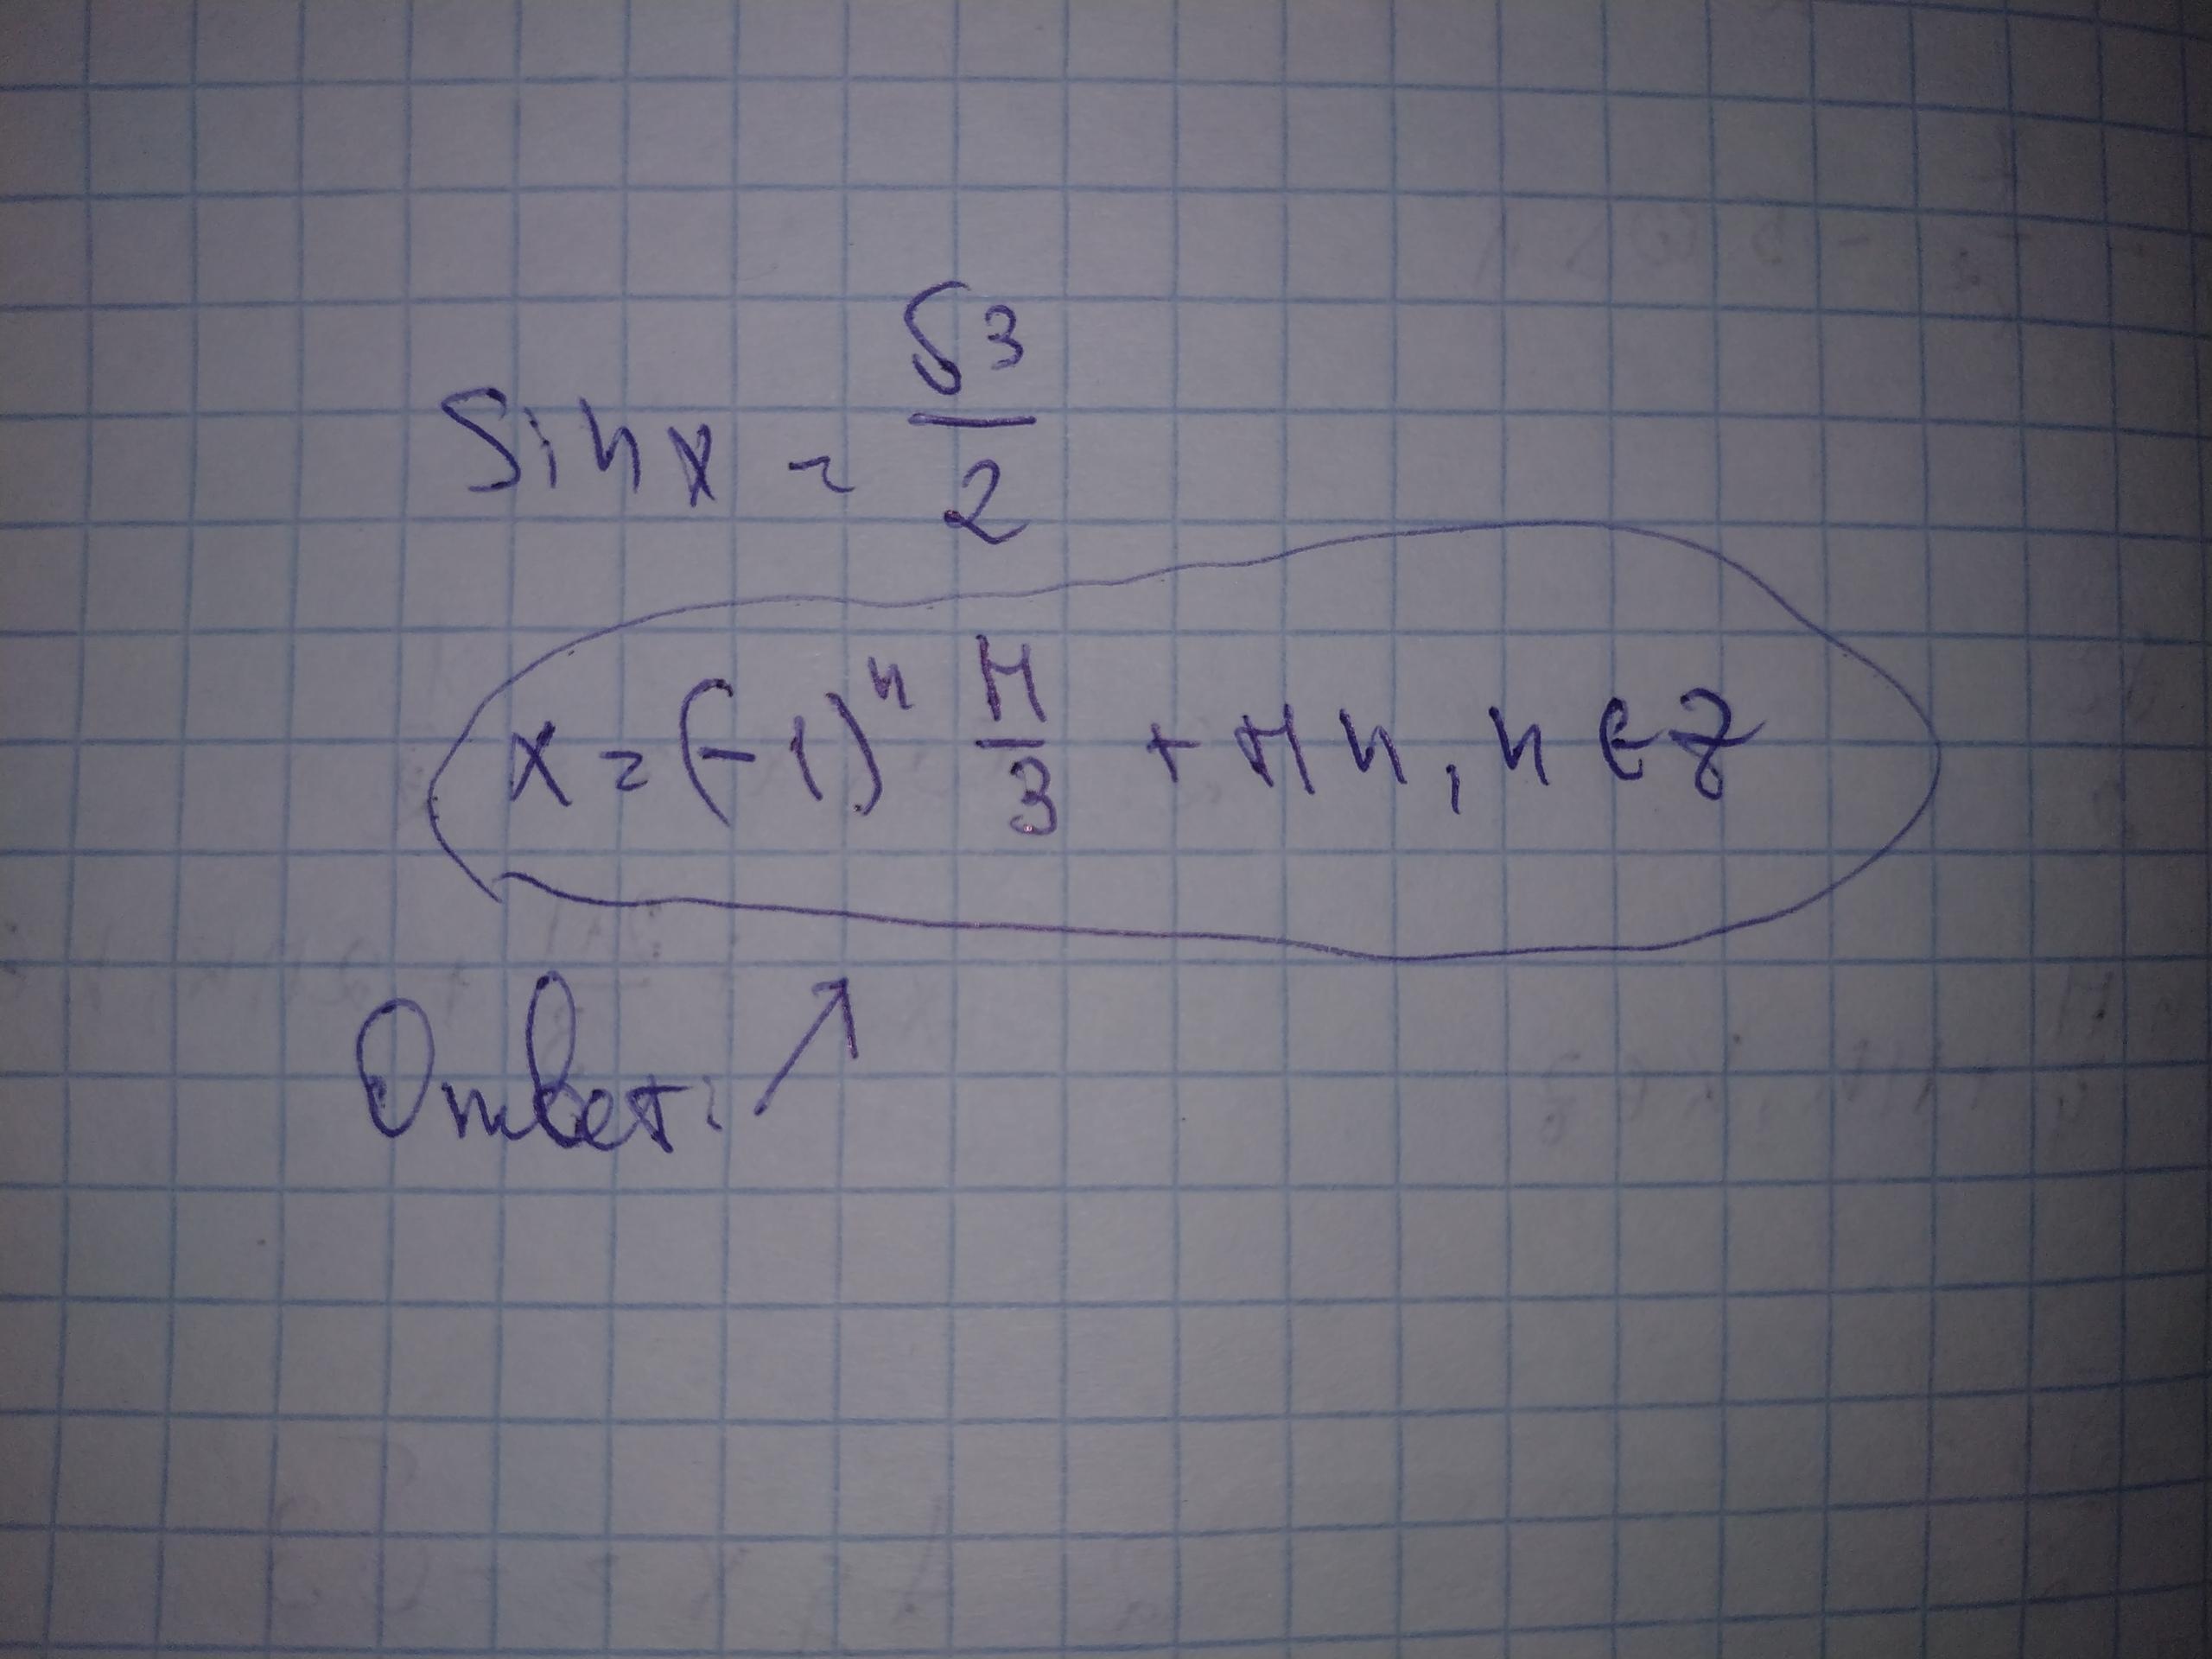 Sin x = √3/2
x = (-1)ⁿ π/3 + πn, n ∈ Z
Ответ: ↗